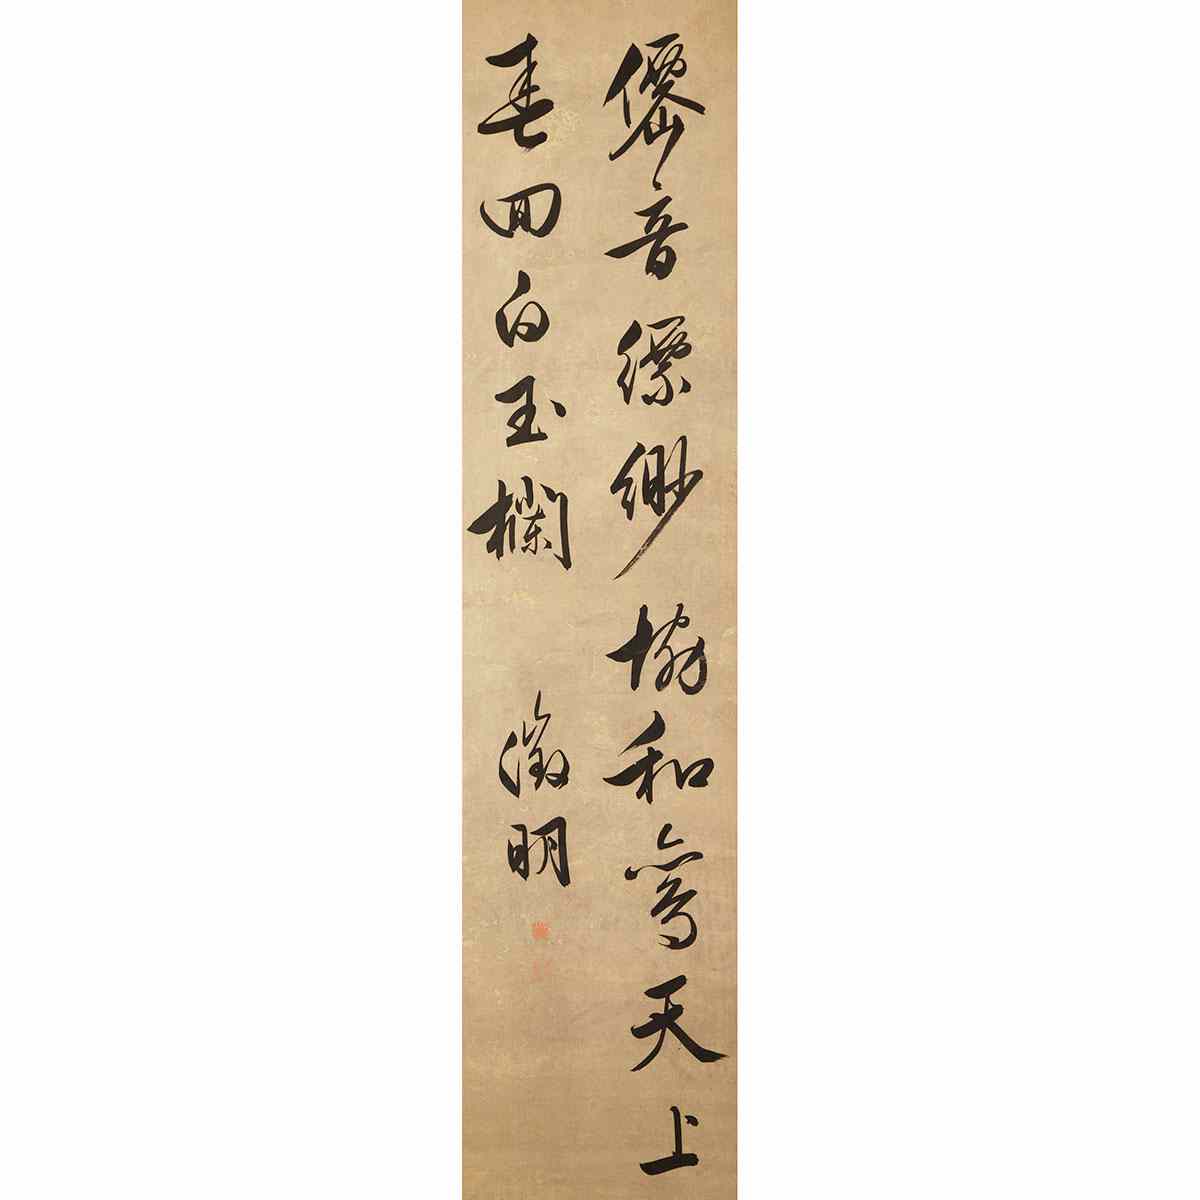 僊音縹緲協和鸞天上
春回白玉欄
徵明